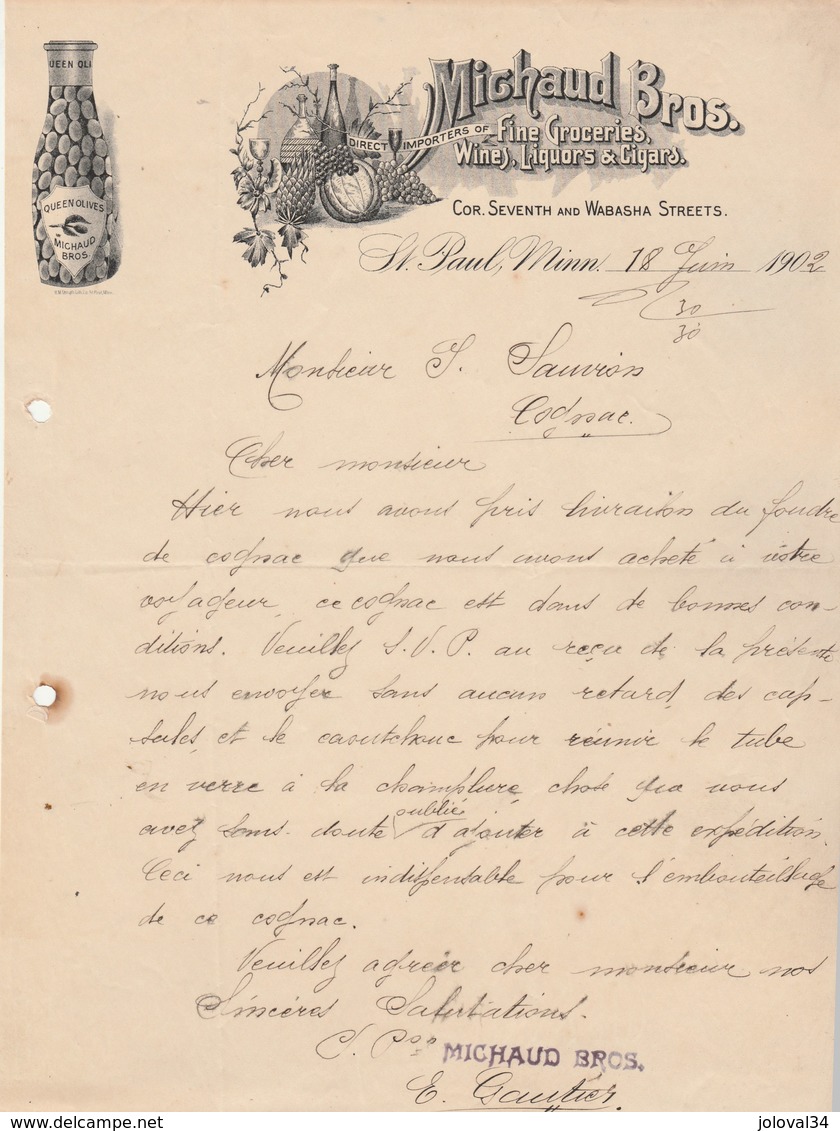 UEEN OLI
QUEEN OLIVES
MICHAUD
BROS.
Michaud Bros.
DIRECT IMPORTERS OF
Fine Groceries,
Wines, Liquors & Cigars.
COR. SEVENTH AND WABASHA STREETS.
St. Paul, Minn. 18 Juin 1902
30
30
Monsieur S. Sauvion
Cognac.
Cher monsieur
Hier nous avons pris livraison du foudre
de cognac que nous avons acheté à votre
voyageur, ce cognac est dans de bonnes con-
ditions. Veuillez S.V.P. au reçu de la présente
nous envoyer sans aucun retard, des cap-
sules, et le caoutchouc pour réunir le tube
en verre à la champlure, chose que vous
oublié
avez sans doute d'ajouter à cette expédition.
Ceci nous est indispensable pour l'embouteillage
de ce cognac.
Veuillez agréer cher monsieur nos
Sincères Salutations.
MICHAUD BROS.
E. Gautier.
delcampe.net
joloval34